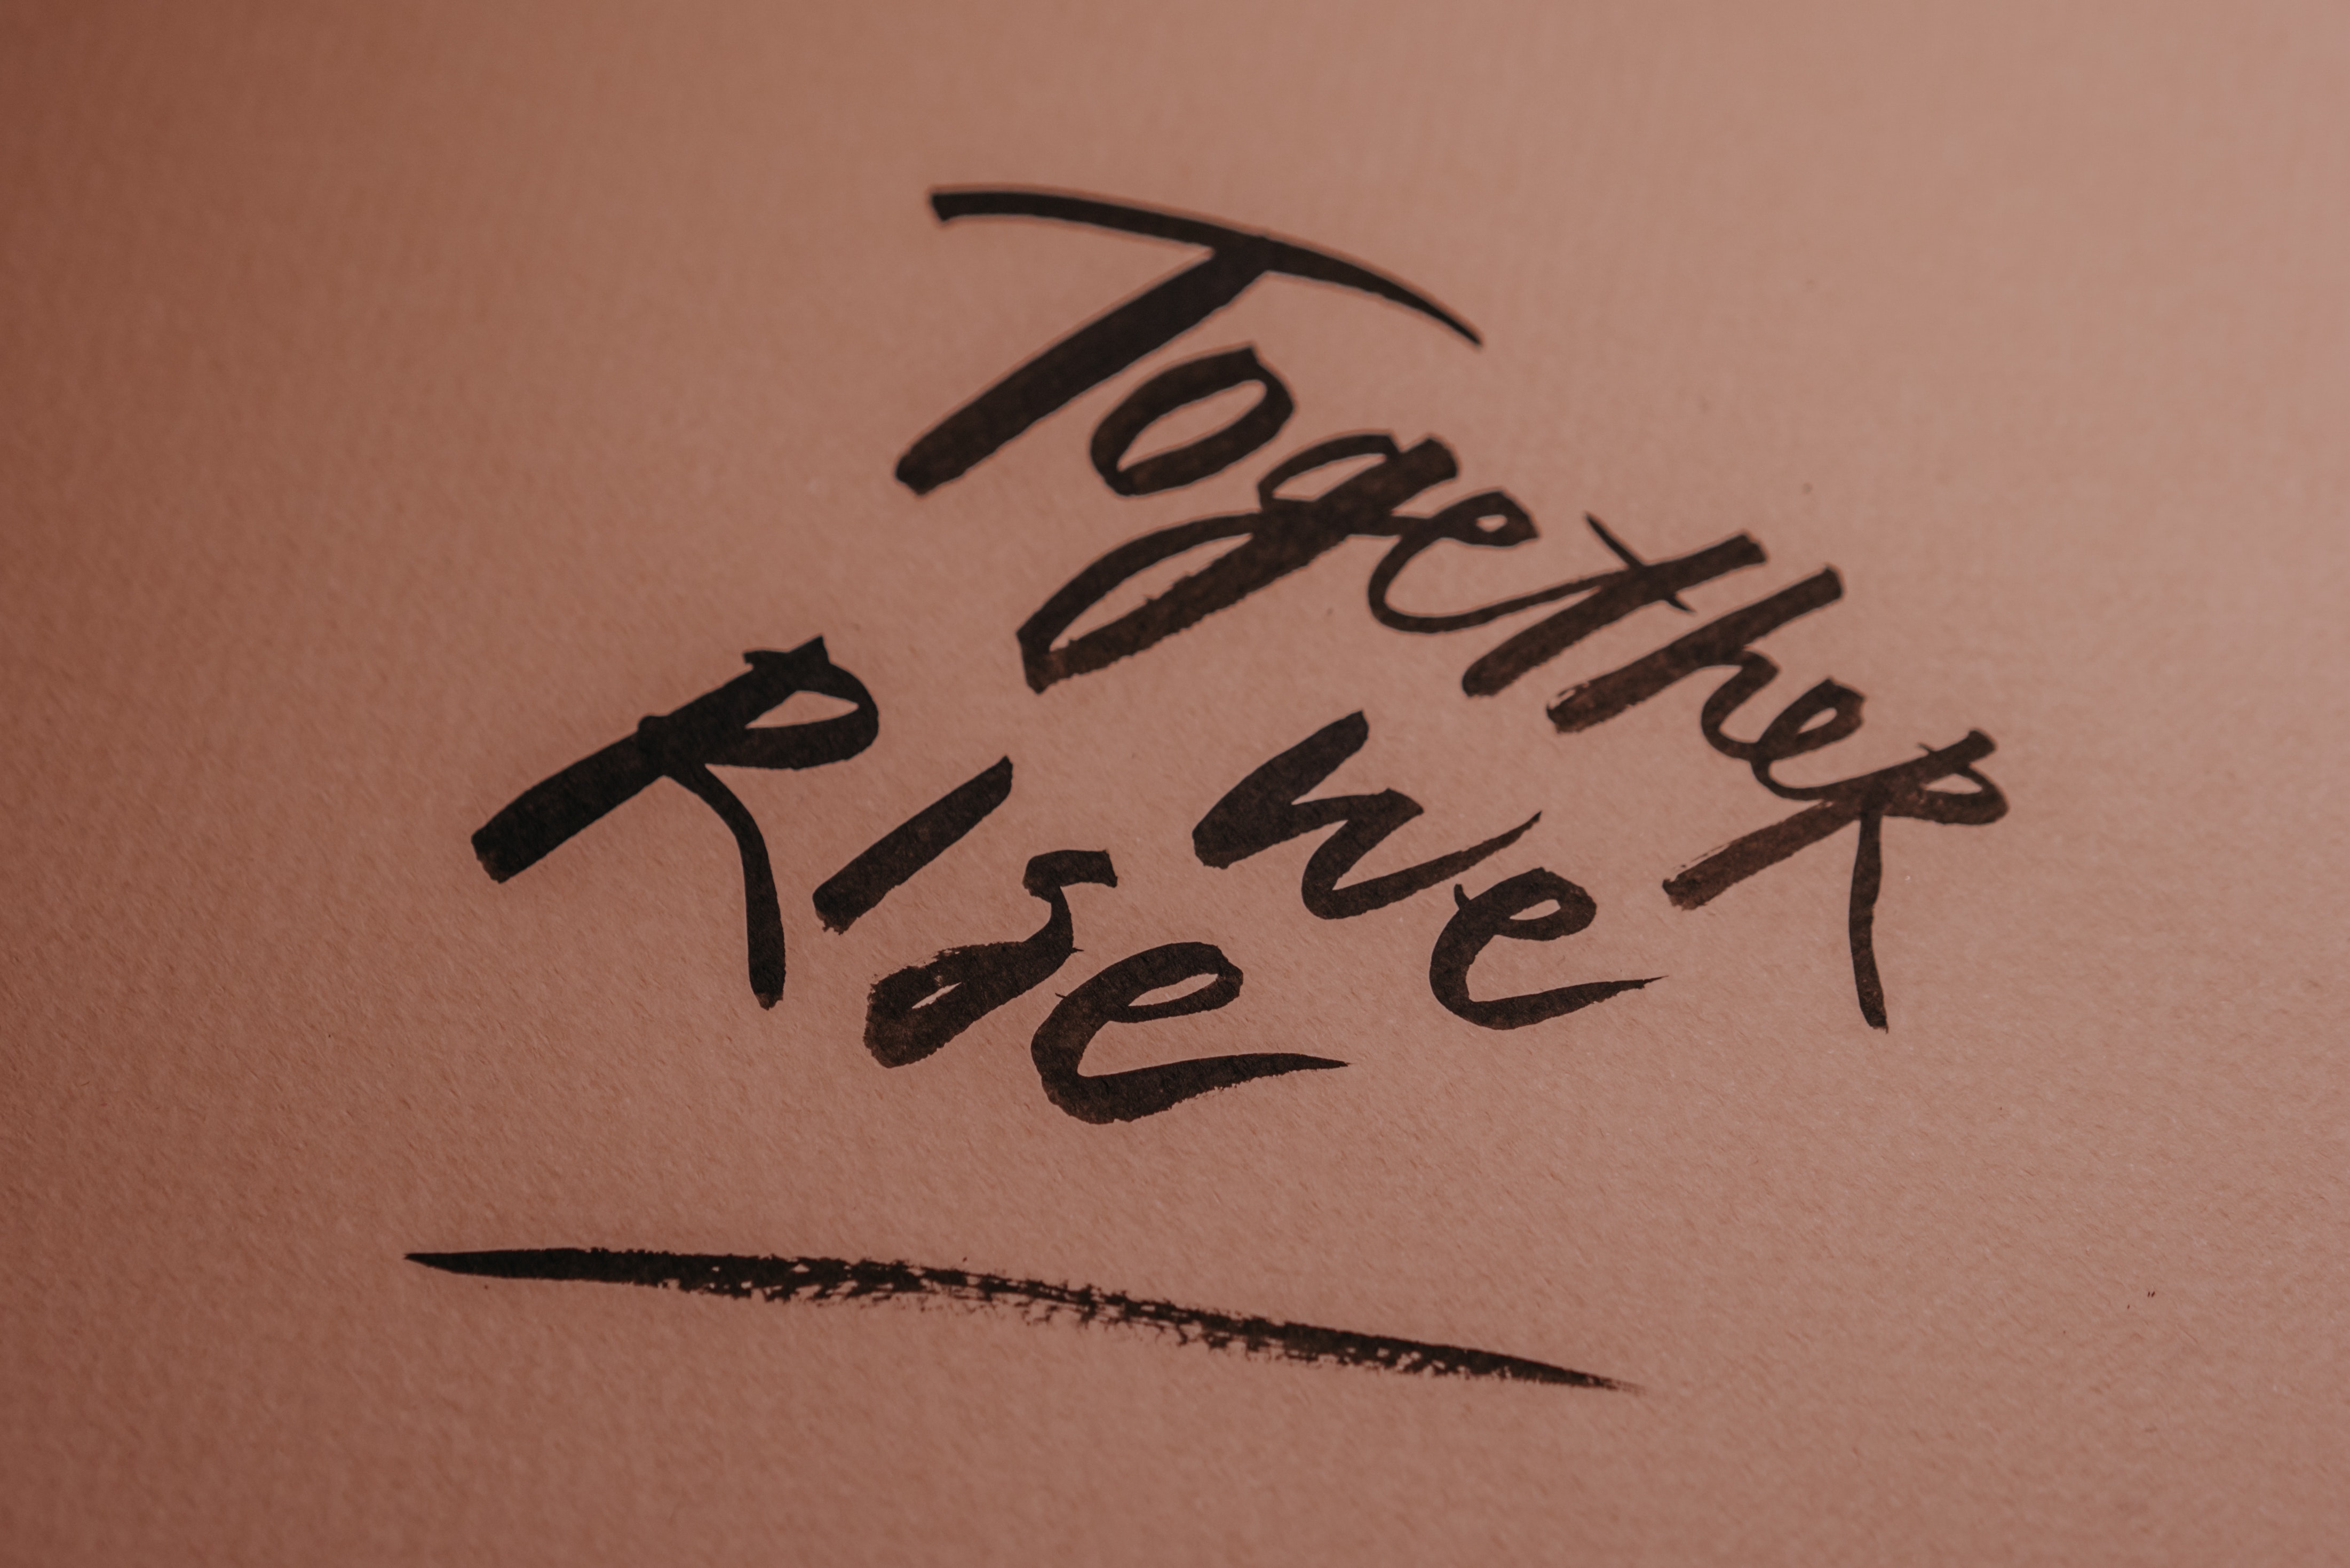 Together
we
Rise